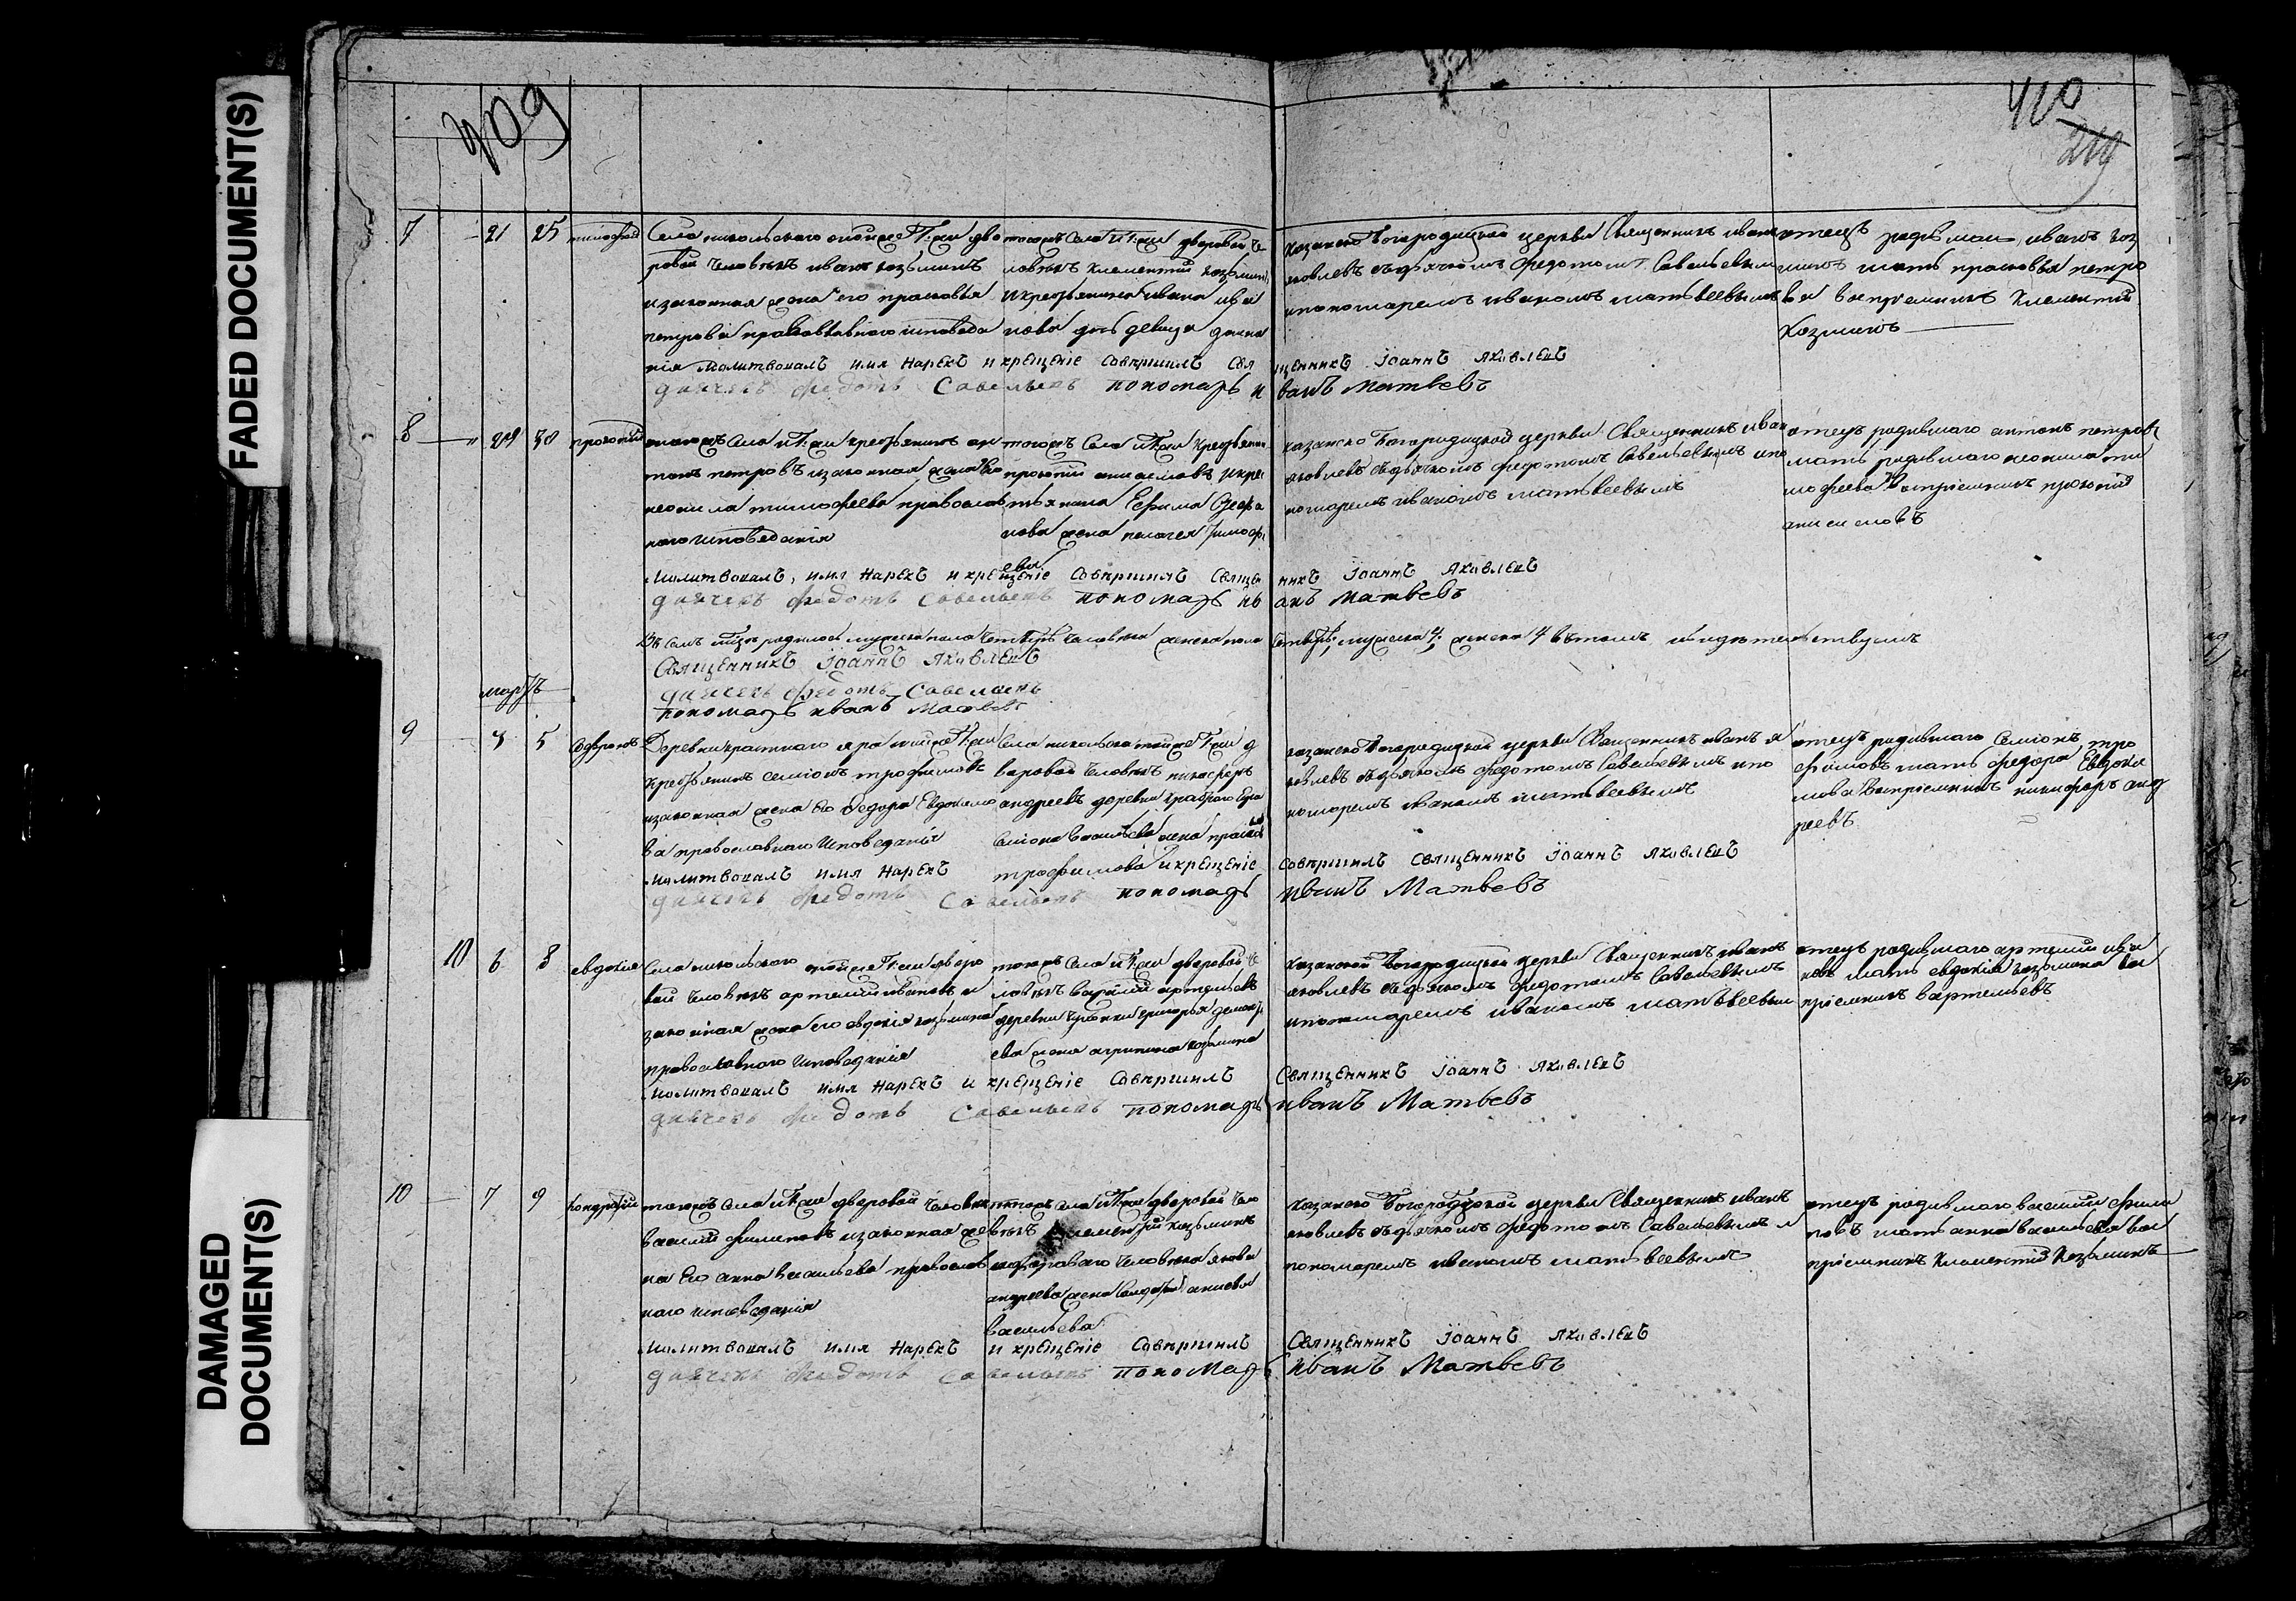 FADED DOCUMENT(S)
DAMAGED
DOCUMENT(S)
409
410
219
7 21 25 тимофей
Села никольского той же дво
ровой человекъ иванъ козьминъ
и законная жена его прасковья
петрова православнаго исповеда
нія
тогожъ села дворовой че
ловекъ климентий козьминъ
и крестьянина ивана ива
нова дочь девица
казанско богородицкой церкви священникъ иванъ
яковлевъ съ дьячкомъ федотомъ савельевым
и пономаремъ иваномъ матвеевымъ
отецъ иванъ коз
минъ мать прасковья петро
ва восприемникъ климентий
козминъ
молитвовалъ имя нарекъ и крещеніе совершилъ свя
щенникъ Іоаннъ яковлевъ
дьячекъ федотъ савельевъ пономарь и
ванъ матвевъ
8 29 30 прокопий
тогожъ села крестьянинъ ан
тонъ петровъ и законная жена его
неонила тимофеева православ
наго исповеданія
тогожъ села крестьянин
прокопий анисимовъ и крес
тьянина Ефима
нова жена пелагея тимоф
ева
казанско богородицкой церкви священникъ иван
яковлевъ съ дьячкомъ федотомъ савельевымъ и по
номаремъ иваномъ матвеевымъ
отецъ родившаго антонъ петровъ
мать родившаго неонила ти
мофеева восприемникъ прокопий
анисимовъ
молитвовалъ, имя нарекъ и крещеніе совершилъ свяще
нникъ Іоаннъ яковлевъ
дьячекъ федотъ савельевъ пономарь ив
анъ матвевъ
въ семъ родилось мужеска пола четыре человека женска пола
четыре, мужска 4, женска 4 в томъ и свидетельствуемъ
священникъ Іоаннъ яковлевъ
дьячекъ федотъ савельевъ
пономарь иванъ матвевъ
мартъ
9 3 5
Деревни краснаго яра той же
крестьянинъ семионъ трофимовъ
и законная жена его федора Евдокимо
ва православнаго исповеданія
села никольска той же д
воровой человекъ никифоръ
андреевъ деревни
семиона васильева жена праско
трофимова
казанско богородицкой церкви священникъ иванъ я
ковлевъ съ дьячкомъ федотомъ савельевымъ и по
номаремъ иваномъ матвеевымъ
отецъ родившаго семионъ тро
фимовъ мать федора Евдоки
мова восприемникъ никифоръ анд
реевъ
молитвовалъ имя нарекъ и крещеніе
совершилъ священникъ Іоаннъ яковлевъ
дьячекъ федотъ савельевъ пономарь
иванъ матвевъ
10 6 8 евдокия
Села никольского той же дворо
вой человекъ артемий ивановъ и
законная жена его евдокія козьмина
православнаго исповеданія
тогожъ села дворовой че
ловекъ василий артемьевъ
деревни григорья дементь
ева жена агрипина козьмина
казанской богородицкой церкви священникъ иванъ
яковлевъ съ дьячкомъ федотомъ савельевымъ
и пономаремъ иваномъ матвеевым
отецъ родившаго артемий ива
новъ мать евдокия козьмина вос
приемникъ в артемьевъ
молитвовалъ имя нарекъ и крещеніе совершилъ
священникъ Іоаннъ яковлевъ
дьячекъ федотъ савельевъ пономарь
иванъ матвевъ
10 7 9 кондратий
тогожъ села дворовой человек
василий филиповъ и законная же
на его анна васильева православ
наго исповеданія
тогожъ села дворовой чело
векъ климентий козьминъ
и дворового человека якова
андреева жена
васильева
казанско богородицкой церкви священникъ иванъ
яковлевъ съ дьячкомъ федотомъ савельевымъ и
пономаремъ иваномъ матвеевымъ
отецъ родившаго василий фили
повъ мать анна васильева вос
приемникъ климентий козьминъ
молитвовалъ имя нарекъ и крещеніе совершилъ
священникъ Іоаннъ яковлевъ
дьячекъ федотъ савельевъ пономарь
иванъ матвевъ